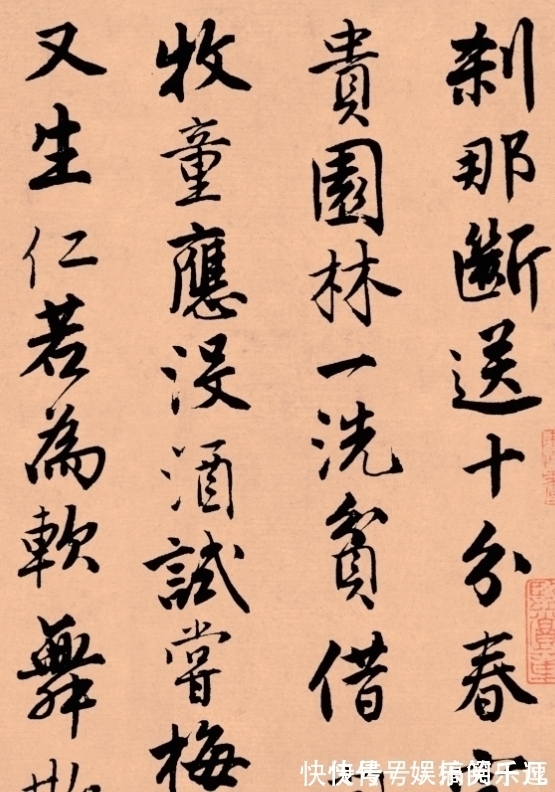 剎那斷送十分春
貴園林一洗貧借
牧童應没酒試嘗梅
又生仁若為軟舞